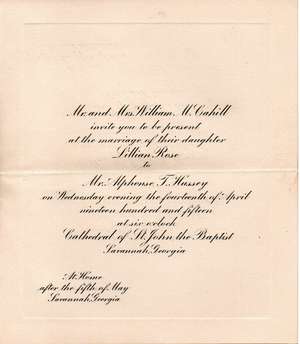 Mr. and Mrs. William M. Cahill
invite you to be present
at the marriage of their daughter
Lillian Rose
to
Mr. Alphonse T. Hussey
on Wednesday evening the fourteenth of April
nineteen hundred and fifteen
at six o'clock
Cathedral of St. John the Baptist
Savannah, Georgia
At Home
after the fifth of May
Savannah, Georgia